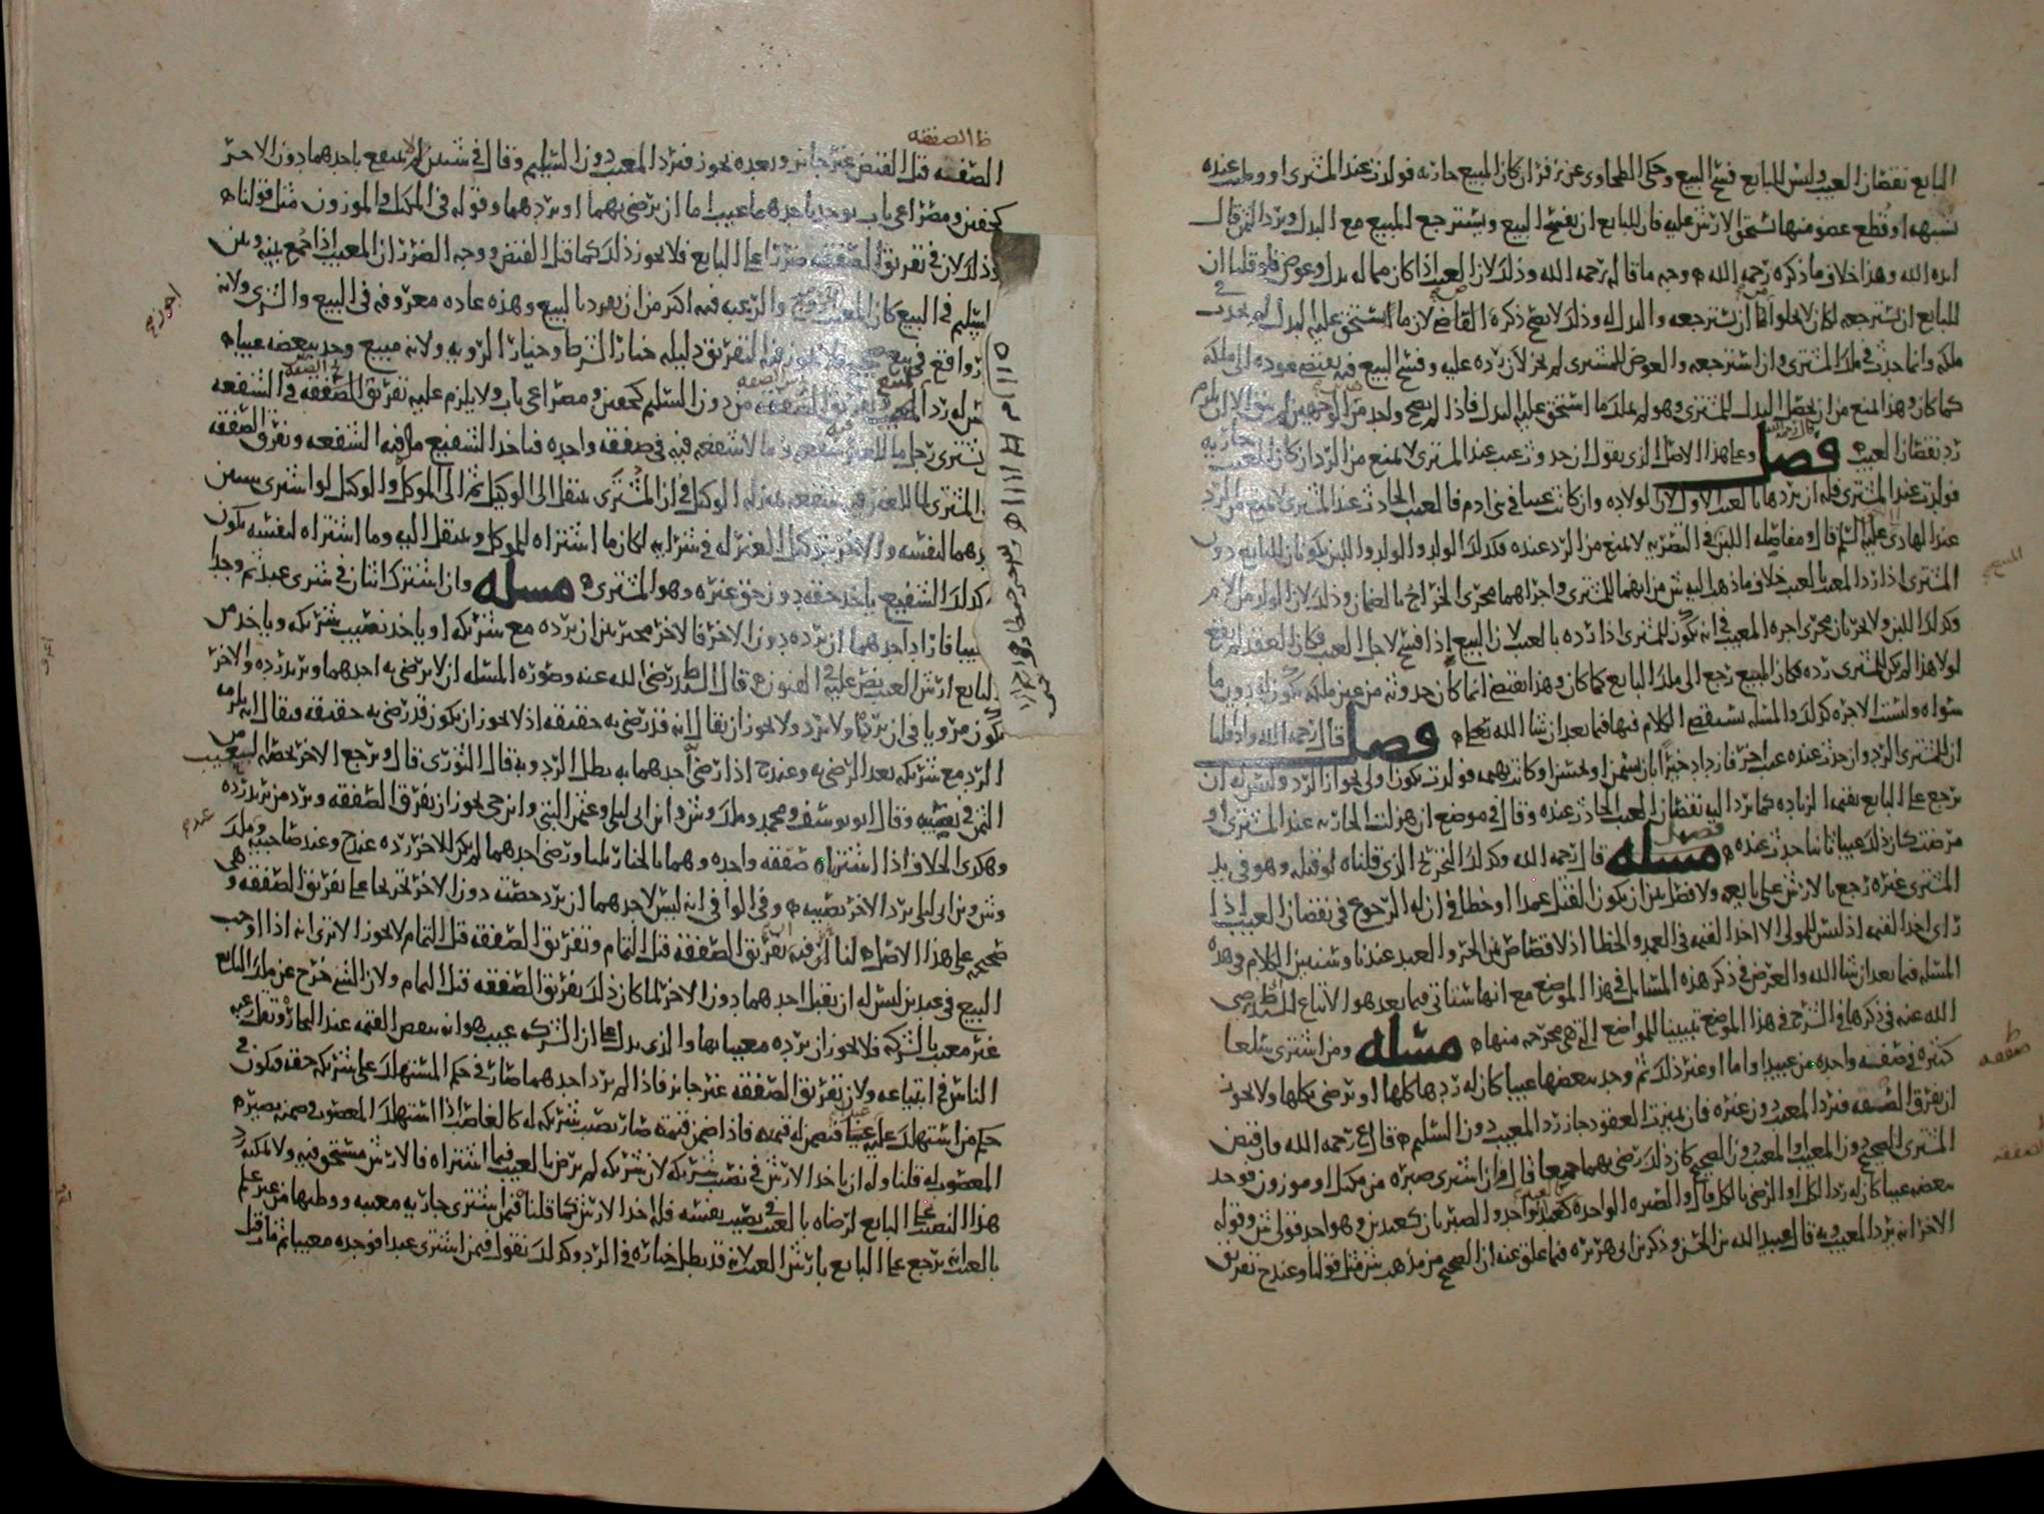 البايع نقصان العيب وليس للبايع فسخ البيع وحكى الطحاوى عن زفر ان كان المبيع جاريه فولدت عند المشترى او وطيت عنده
بشبهه او قطع عضو منها يستحق الارش عليه فان للبايع ان يفسخ البيع ويسترجع المبيع مع البدل ويرد الثمن قال
ايده الله وهذا خلاف ما ذكره رحمه الله وجه ما قاله رحمه الله وذلك لان العيب اذا كان مما له بدل وعوض فلو قلنا ان
للبايع ان يسترجعه لكان لا يخلو اما ان يسترجعه والبدل له وذلك لا يصح ذكره القاضى لان ما استحق عليه البدل لم يحدث فى
ملكه وانما حدث فى ملك المشترى وان استرجعه والعوض للمشترى لم يجز لان رده عليه وفسخ البيع فيه يقتضى عوده الى ملكه
كما كان وهذا المنع من ان يحصل البدل للمشترى وهو لم يملك ما استحق عليه البدل فاذا لم يصح واحد من الوجهين لم يبق الا ان يلزم
رد نقصان العيب فصل وعلى هذا الاصل الذى يقول ان حدوث عيب عند المشترى لا يمنع من الرد ان كان المعيب جاريه
فولدت عند المشترى فله ان يردها بالعيب الاول لان الولاده وان كانت عيبا فى بنى ادم فالعيب الحادث عند المشترى لا يمنع من الرد
عند الهادى عليه السلم قال ومفاصله اللبن فى التصريه لا يمنع من الرد عنده فكذلك الولد والولد واللبن يكونان للبايع دون
المشترى اذا رد المعيب بالعيب خلاف ما ذهب اليه ش من انهما للمشترى واجراهما مجرى الخراج بالضمان وذلك لان الولد من الام
وكذلك اللبن ولا يجريان مجرى اجره المعيب فى انه يكون للمشترى اذا رده بالعيب لان البيع اذا فسخ لاجل العيب فكان العقد لم يقع
لولا هذا لم يكن للمشترى رده فكان المبيع رجع الى ملك البايع كما كان وهذا يقتضى انما كان حدوثه من عين ملكه يكون له دون ما
سواه وليست الاجره كذلك والمسله يستقصى الكلام فيها فيما بعد ان شا الله تعلى فصل قال رحمه الله واذا قلنا
ان للمشترى الرد وان حدث عنده عيب اخر فان زاد خيرا بان يسمن او يحسن او كانت بهيمه فولدت يكون اولى بجواز الرد وليس له ان
يرجع على البايع بقيمه الزياده كما يرد اليه نقصان العيب الحادث عنده وقال فى موضع ان هزلت الجاريه عند المشترى او
مرضت كان ذلك عيبا ثانيا حدث عنده مسله قال رحمه الله وكذلك التخريج الذى قلناه لو قتله وهو فى يد
المشترى غيره رجع بالارش على بايعه ولا فصل بين ان يكون القتل عمدا او خطا فى ان له الرجوع فى نقصان العيب اذا
راى اخذ القيمه اذ ليس للمولى الا اخذ القيمه فى العمد والخطا اذ لا قصاص بين الحر والعبد عندنا وسنبين الكلام فى هذه
المسله فيما بعد ان شا الله والغرض فى ذكر هذه المسايل فى هذا الموضع مع انها ستاتى فيما بعد هو الاتباع للسيد ط رضى
الله عنه فى ذكرها فى الشرح فى هذا الموضع تبيينا للمواضع التى هى مخرجه منها مسله ومن اشترى سلعا
كثيره فى صفقه واحده من عبيد او اما او غير ذلك ثم وجد ببعضها عيبا كان له ردها كلها او يرضى بكلها ولا يجوز
ان يفرق الصفقه فيرد المعيب دون غيره فان ميزت العقود جاز رد المعيب دون السليم قال ع رحمه الله وان قبض
المشترى الصحيح دون المعيب او المعيب دون الصحيح كان ذلك رضى بهما جميعا قال وان اشترى صبره من مكيل او موزون فوجد
ببعضه عيبا كان له رد الكل او الرضى بالكل قال والصبره الواحده كعبد واحد والصبرتان كعبدين وهو احد قولى ش وقوله
الاخر انه يرد المعيب وبه قال عبيد الله بن الحسن وذكر بن ابى هريره فيما علق عنه ان الصحيح من مذهب ش مثل قولنا وعند ح تفريق
ظ الصفقه
الصفقه قبل القبض غير جايز وبعده يجوز فيرد المعيب دون السليم وقال فى شيين لا ينتفع باحدهما دون الاخر
كخفين ومصراعى باب يوجد باحدهما عيب اما ان يرضى بهما او يردهما وقوله فى المكيل والموزون مثل قولنا
وذلك لان فى تفريق الصفقه ضررا على البايع فلا يجوز ذلك كما قبل القبض ووجه الضرر ان المعيب اذا جمع بينه وبين
السليم فى البيع كان والرغبه فيه اكثر من ان يفرد بالبيع وهذه عاده معروفه فى البيع والشرى ولانه
رد واقع فى بيع صحيح فلا يجوز فيه التفريق دليله خيار الشرط وخيار الرويه ولانه مبيع وجد ببعضه عيبا
ليس له رد المعيب وتفريق الصفقه من دون السليم كخفين ومصراعى باب ولا يلزم عليه تفريق الصفقه فى الشفعه
يشترى رجل ما للغير شفعه وما لا شفعه فيه فى صفقه واحده فياخذ الشفيع ما فيه الشفعه وتفرق الصفقه
المشترى لما للغير فيه شفعه بمنزله الوكيل فى ان المشترى ينتقل الى الوكيل ثم الى الموكل والوكيل لو اشترى شيين
احدهما لنفسه والاخر بتوكيل الغير له فى شرايه لكان ما اشتراه للموكل ينتقل اليه وما اشتراه لنفسه يكون
كذلك الشفيع ياخذ حقه دون حق غيره وهو المشترى مسله وان اشترك اثنان فى شرى عبد ثم وجدا
عيبا فاراد احدهما ان يرده دون الاخر فالاخر مخير بين ان يرده مع شريكه او ياخذ نصيب شريكه وياخذ من
البايع ارش العيب نص عليه فى الفنون قال السيد ط رضى الله عنه وصوره المسله ان لا يرضى به احدهما ويريد رده والاخر
يكون مرويا فى ان يرد او لا يرد ولا يجوز ان يقال انه قد رضى به حقيقه اذ لا يجوز ان يكون قد رضى به حقيقه فيقال انه يلزمه
الرد مع شريكه بعد الرضى به وعند ح اذا رضى احدهما به بطل الرد وبه قال الثورى قال ويرجع الاخر بحصه العيب من
الثمن فى نصيبه وقال ابو يوسف ومحمد وملك وش وابن ابى ليلى وعثمن البتى وابن حى يجوز ان يفرق الصفقه ويرد من يريد رده
وهكذى الخلاف اذا اشتراه صفقه واحده وهما بالخيار ثلثا ورضى احدهما لم يكن للاخر رده عند ح وعند صاحبيه وملك
وش وبن ابى ليلى يرد الاخر نصيبه وفى الوافى انه ليس لاحدهما ان يرد حصته دون الاخر تخريجا على تفريق الصفقه وهى
صحيحه على هذا الاصل لنا ان فيه تفريق الصفقه قبل التمام وتفريق الصفقه قبل التمام لا يجوز الا ترى انه اذا اوجب
البيع فى عبدين ليس له ان يقبل احدهما دون الاخر لما كان ذلك تفريق الصفقه قبل التمام ولان الشى خرج عن ملك البايع
غير معيب بالشركه فلا يجوز ان يرده معيبا بها والذى يدل على ان الشرك عيب هو انه ينقص القيمه عند التجار وتقل رغبه
الناس فى ابتياعه ولان تفريق الصفقه غير جايز فاذا لم يرد احدهما صار فى حكم المستهلك على شريكه حقه فيكون فى
حكم من استهلك عليه عينا فيضمن له قيمته فاذا ضمن قيمته صار نصيب شريكه له كالغاصب اذا استهلك المغصوب ضمنه يصير
المغصوب له قلنا وله ان ياخذ الارش فى نصيب شريكه لان شريكه لم يرض بالعيب فيما اشتراه فالارش مستحق فيه ولا يمكنه رد
هذا النصيب على البايع لرضاه بالعيب فى نصيب نفسه فله اخذ الارش كما قلنا فيمن اشترى جاريه معيبه ووطيها من غير علم
بالعيب انه يرجع على البايع بارش العيب لانه قد بطل خياره فى الرد وكذلك نقول فيمن اشترى عبدا فوجده معيبا ثم قتل